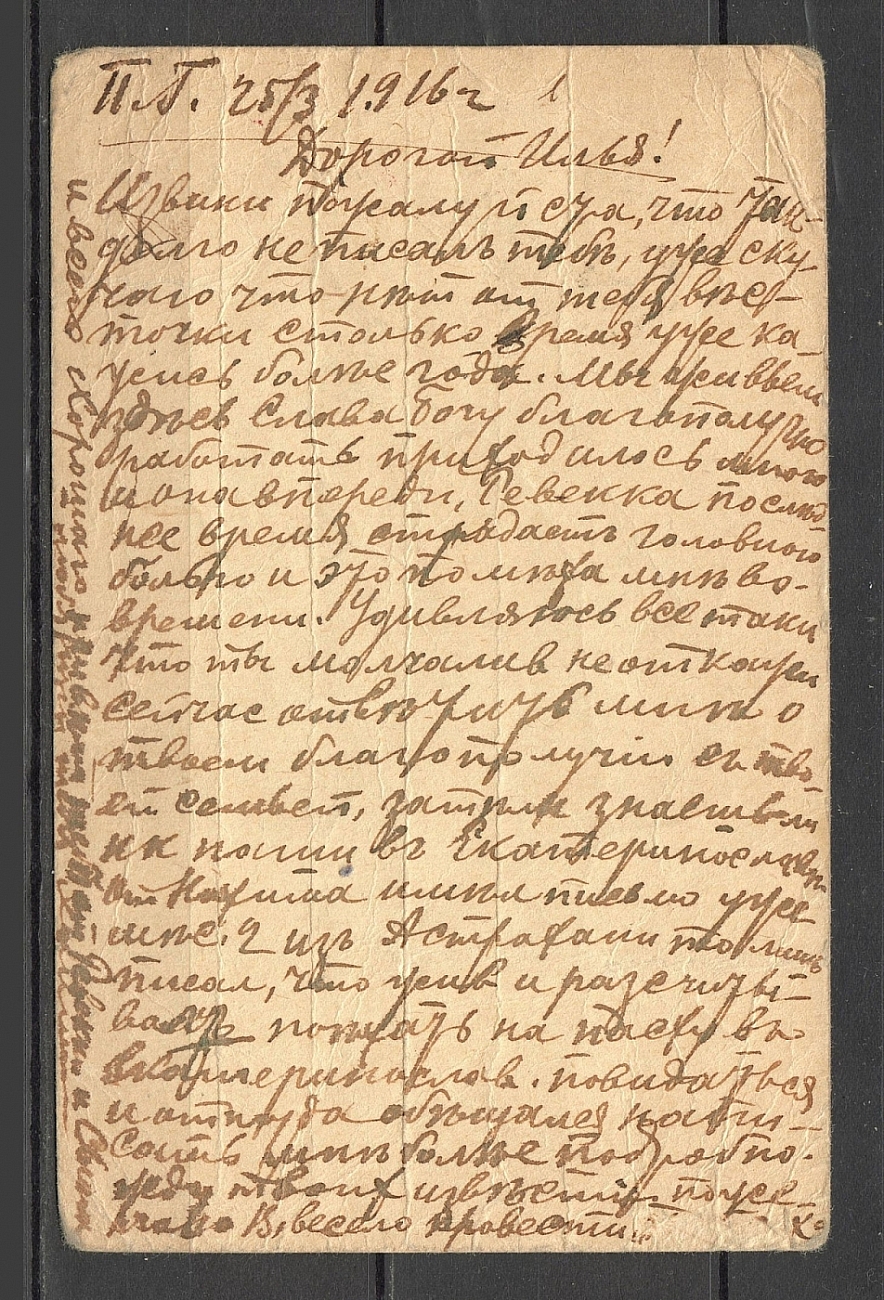 П.Г. 25/3 1916 г
Дорогой Илья!
Извини пожалуйста, что так
долго не писалъ тебѣ, уже ску-
что нѣт от тебя вѣс-
точки столько время уже ка-
жись болѣе года. Мы живвем
здѣсь Слава Богу благополучно
работать приходилось много
и она впереди, Ревекка послѣд-
нее время страдаеть головною
болью и это помѣха мнѣ во-
времени. Удивляюсь все таки
что ты молчалив не откажи
сейчас отвѣтить мнѣ о
твоем благополучiи съ тво-
ей семьей, затѣм знаешь ли
как наши въ Екатеринославѣ
От имѣл письмо уже
мѣс. 2 изъ Астрахани то лишь
писал, что жив и разсчиты-
валъ поѣхать на пасху въ
Екатеринослав. повидаться
и оттуда обѣщался напи-
сать мнѣ болѣе подробно.
жду твоих извѣстiй
весело провести
и всего хорошаго привет от Ревекки и